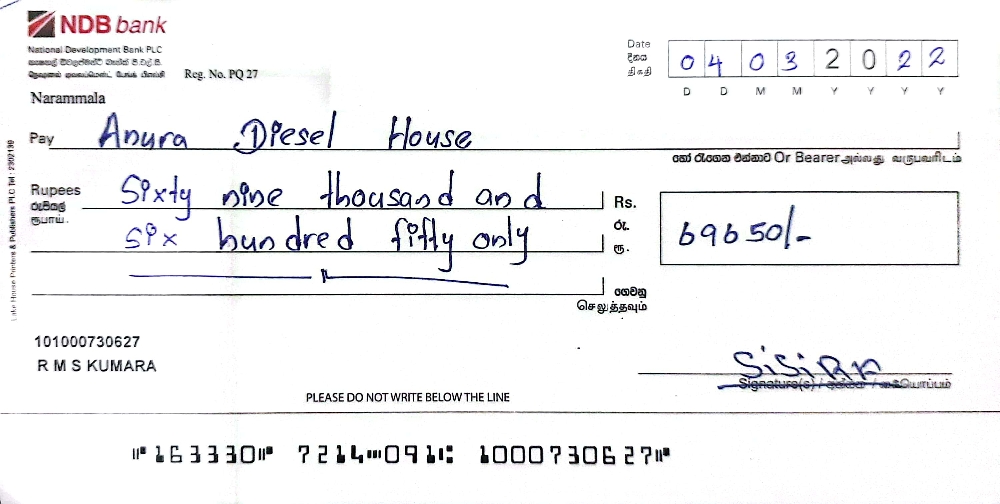 NDB bank
National Development Bank PLC
Reg. No. PQ 27
Narammala
Date
දිනය
திகதி
0 4 0 3 2 0 2 2
D D M M Y Y Y Y
Pay Anura Diesel House
හෝ රැගෙන එන්නාට Or Bearer அல்லது வருபவரிடம்
Rupees Sixty nine thousand and
රුපියල්
ரூபாய். six hundred fifty only
Rs. 69650/-
රු.
ரூ.
ගෙවනු
செலுத்தவும்
101000730627
R M S KUMARA
Signature(s) / அத்සන / கையொப்பம்
PLEASE DO NOT WRITE BELOW THE LINE
163330 7214 091 1000730627
Lake House Printers & Publishers PLC Tel : 2302130